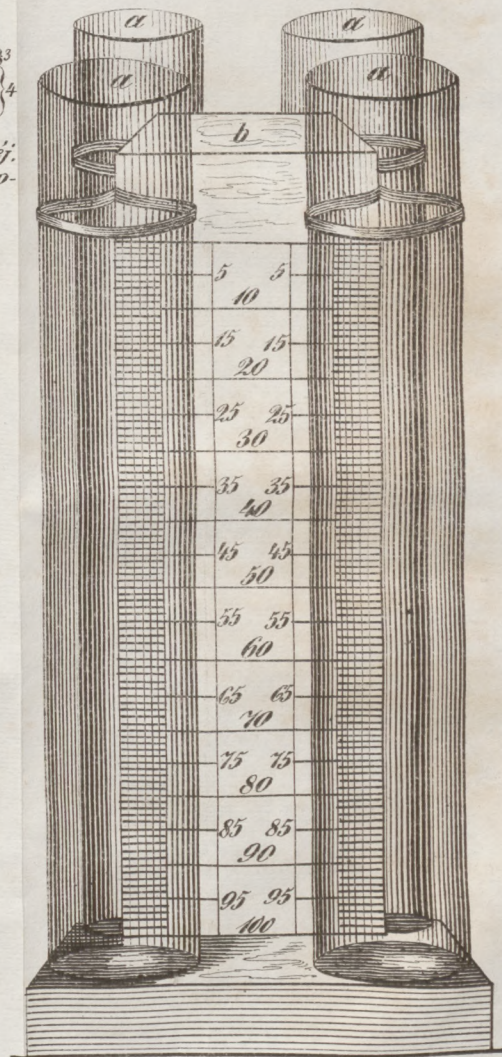 a a
3
a a
4
b
5 5
10
15 15
20
25 25
30
35 35
40
45 45
50
55 55
60
65 65
70
75 75
80
85 85
90
95 95
100